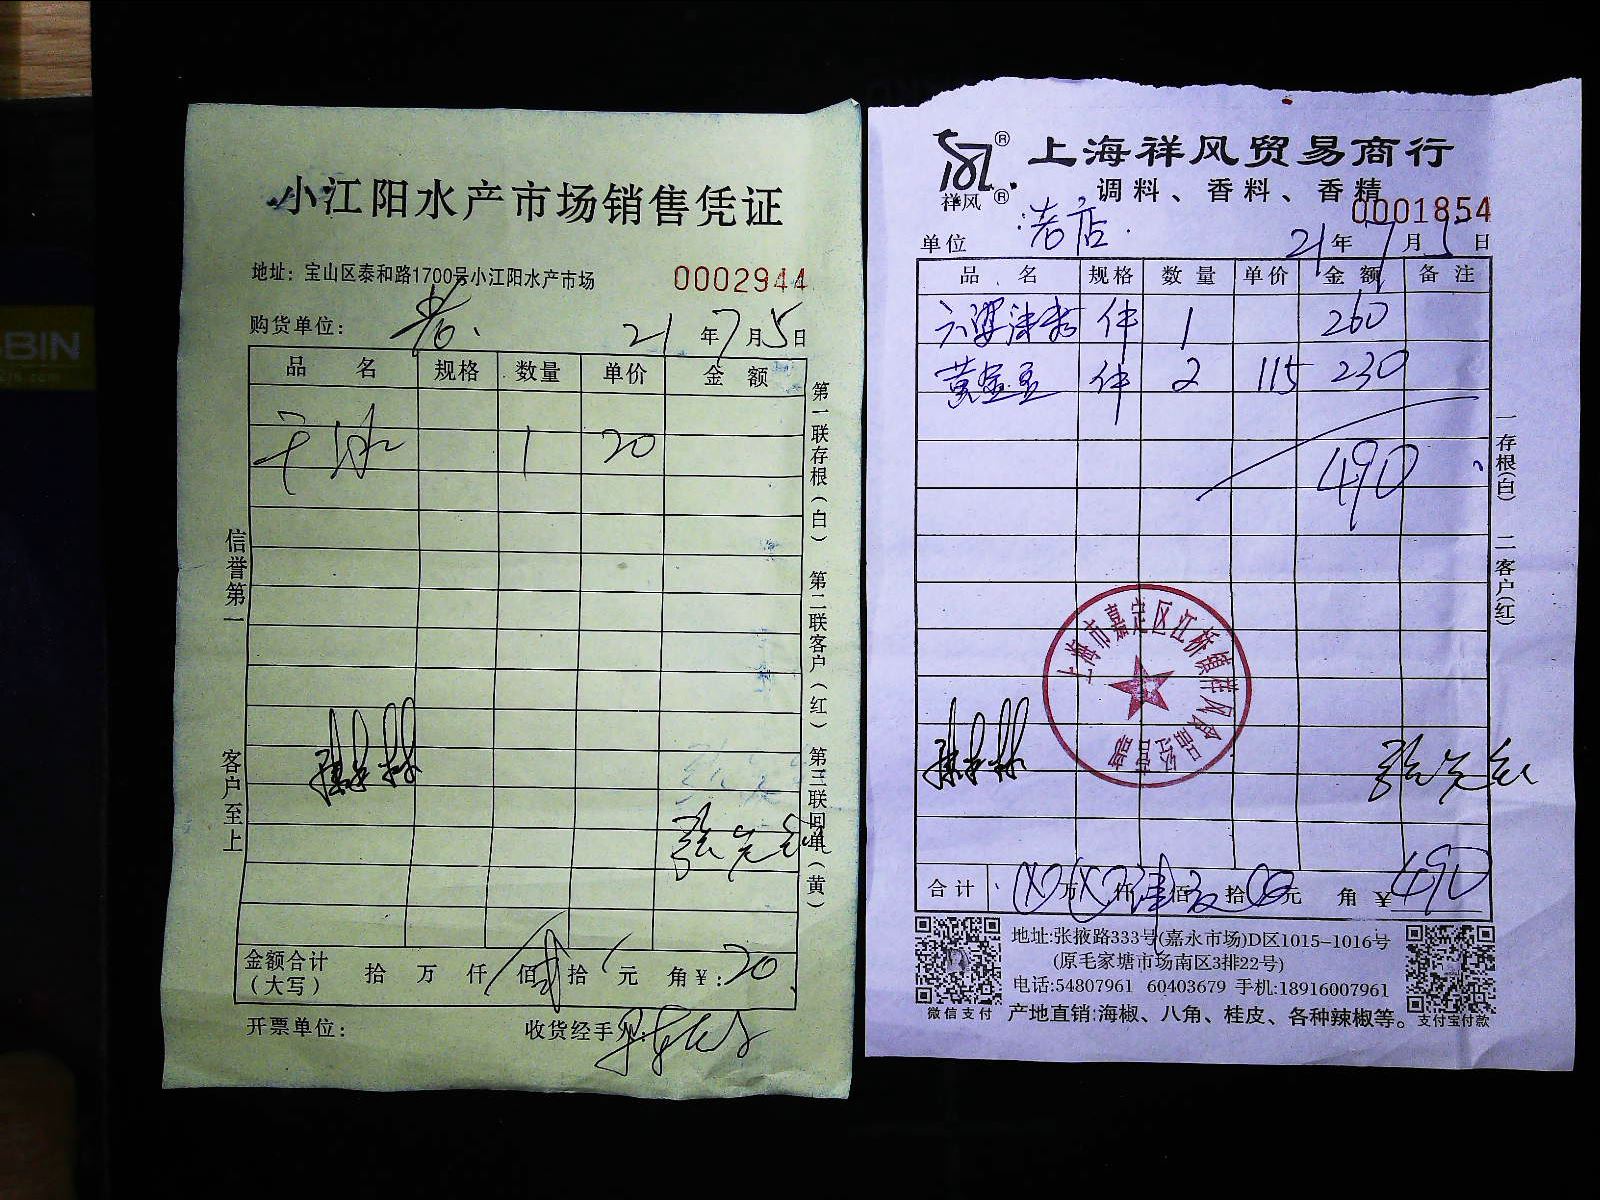 小江阳水产市场销售凭证
地址：宝山区泰和路1700号小江阳水产市场
0002944
购货单位：老
21年7月5日
品名 规格 数量 单价 金额
冰 1 20
信誉第一
客户至上
第一联存根（白） 第二联客户（红） 第三联回单（黄）
金额合计（大写） 拾 万 仟 佰 贰拾 元 角 ¥：20
开票单位：
收货经手人：
祥风
上海祥风贸易商行
调料、香料、香精
0001854
单位 老店
21年7月5日
品名 规格 数量 单价 金额 备注
件 1 260
黄金豆 件 2 115 230
490
一存根(白) 二客户(红)
上海市嘉定区江桥镇祥风食品经营部
合计 万 仟 肆佰 玖拾 元 角 ¥490
地址:张掖路333号(嘉永市场)D区1015-1016号
(原毛家塘市场南区3排22号)
电话:54807961 60403679 手机:18916007961
产地直销:海椒、八角、桂皮、各种辣椒等。
微信支付
支付宝付款
BIN